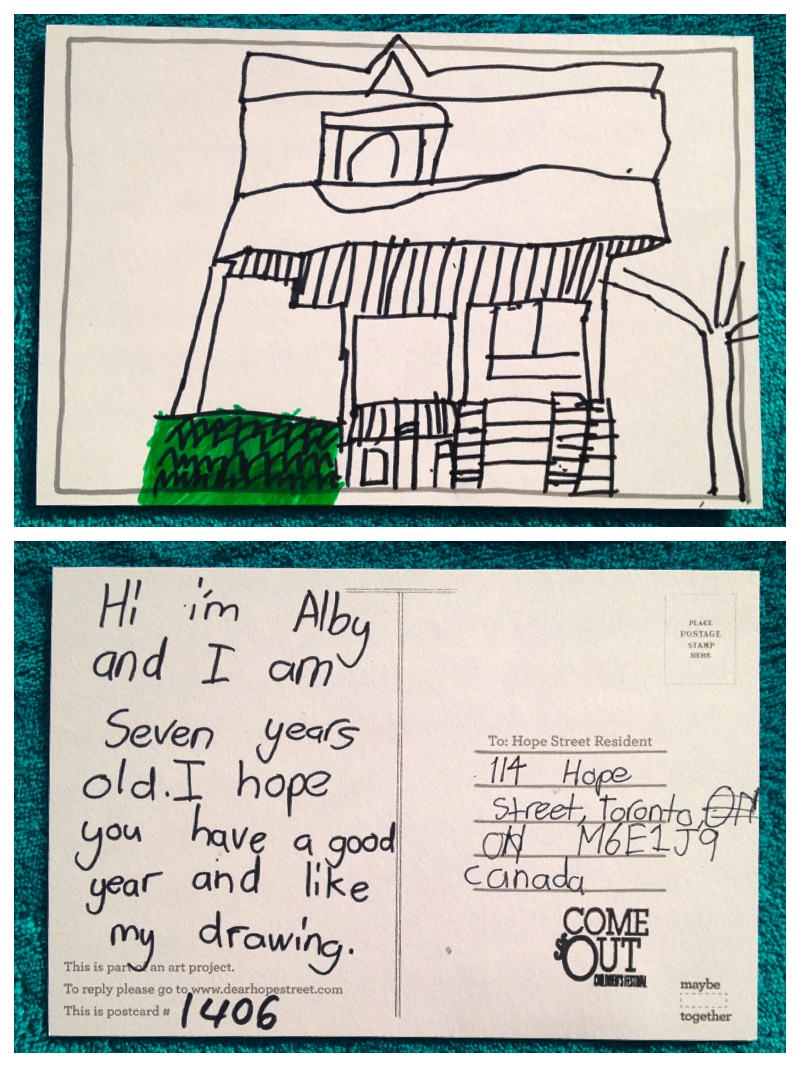 Hi i'm Alby
and I am
Seven years
old. I hope
you have a good
year and like
my drawing.
This is part of an art project.
To reply please go to www.dearhopestreet.com
This is postcard # 1406
PLACE
POSTAGE
STAMP
HERE
To: Hope Street Resident
114 Hope
Street, Toronto, ON
ON M6E1J9
Canada
COME
OUT
CHILDREN'S FESTIVAL
maybe
together